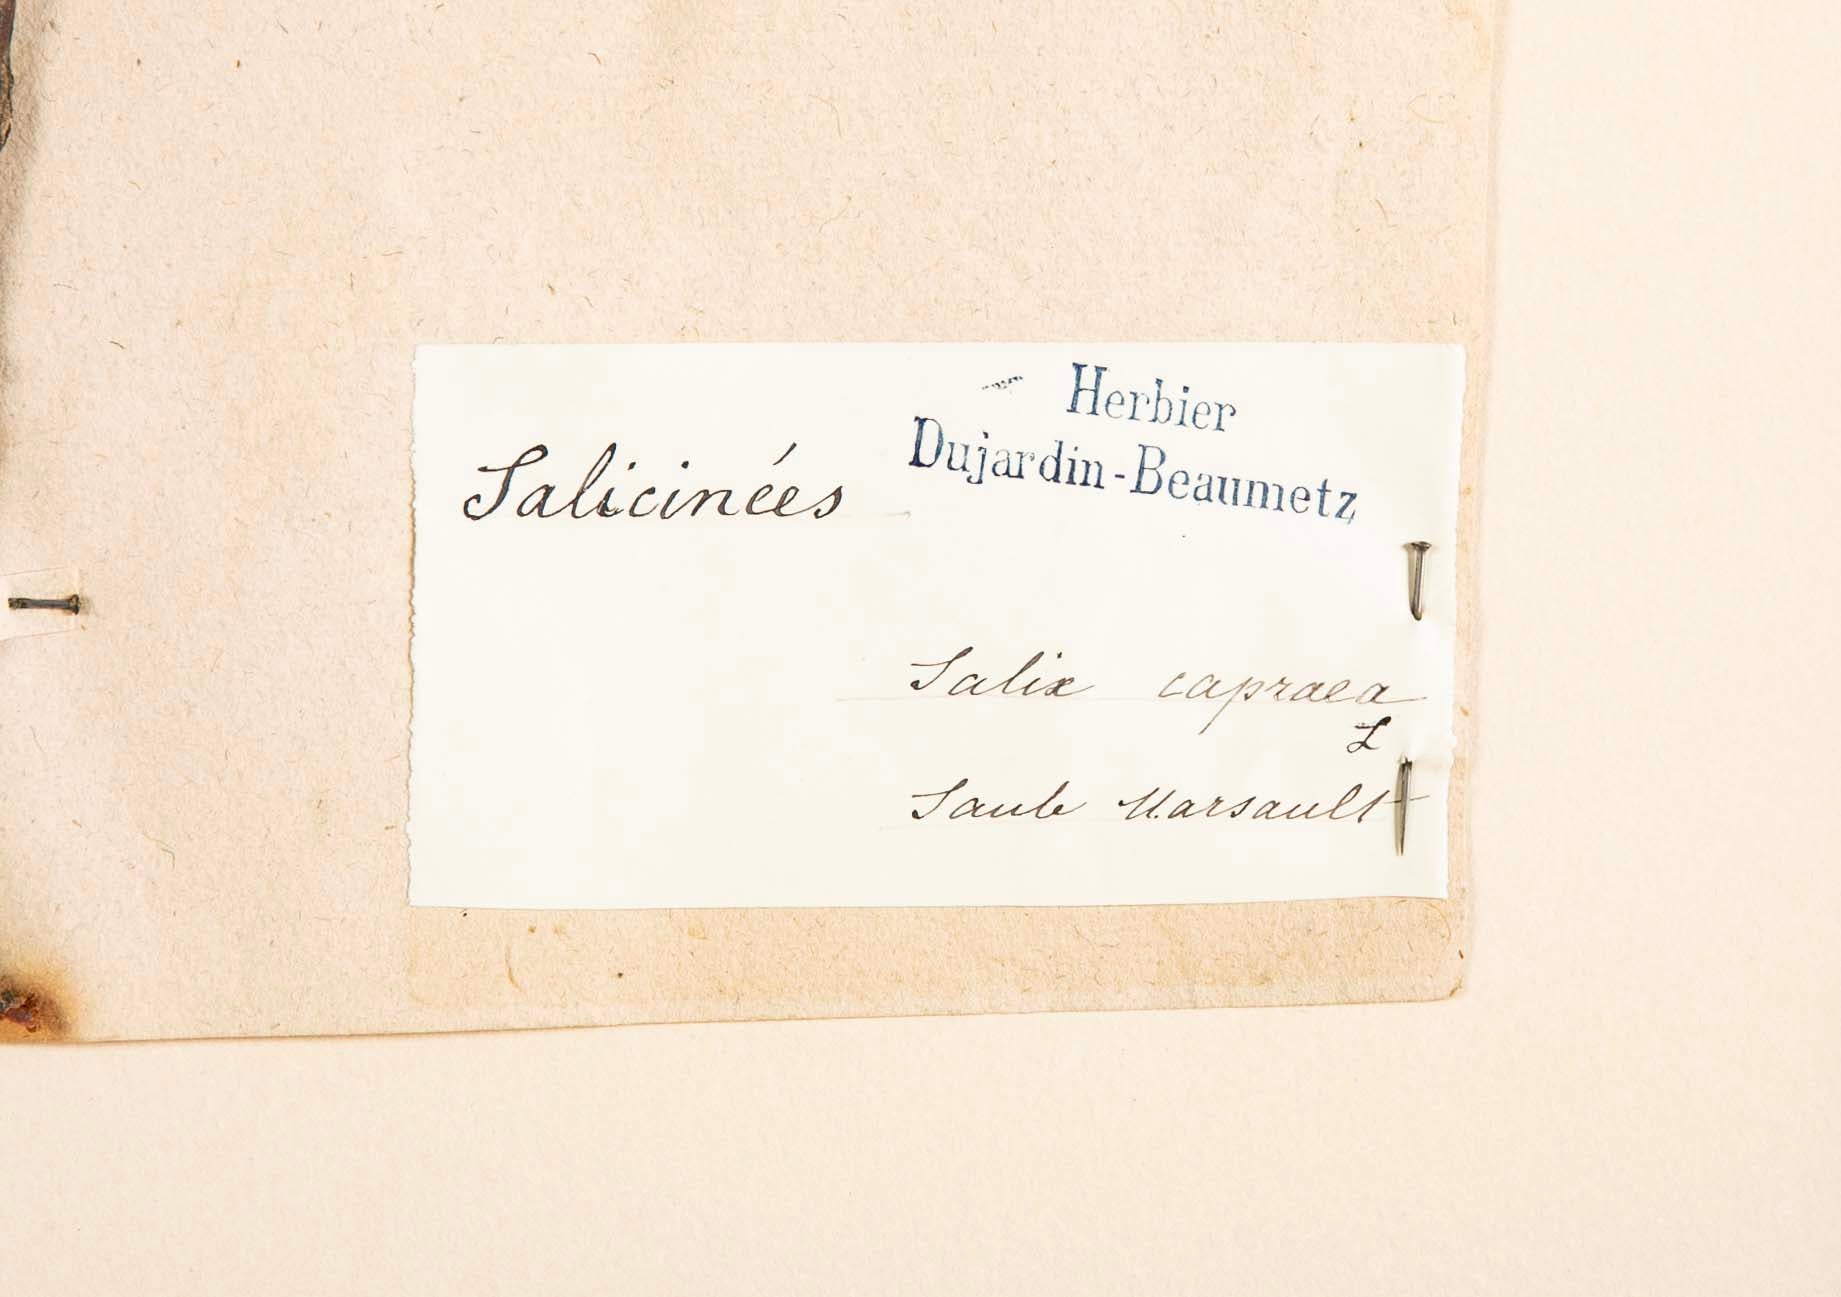 Herbier
Dujardin-Beaumetz
Salicinées
Salix capraea
L
Saule Marsault